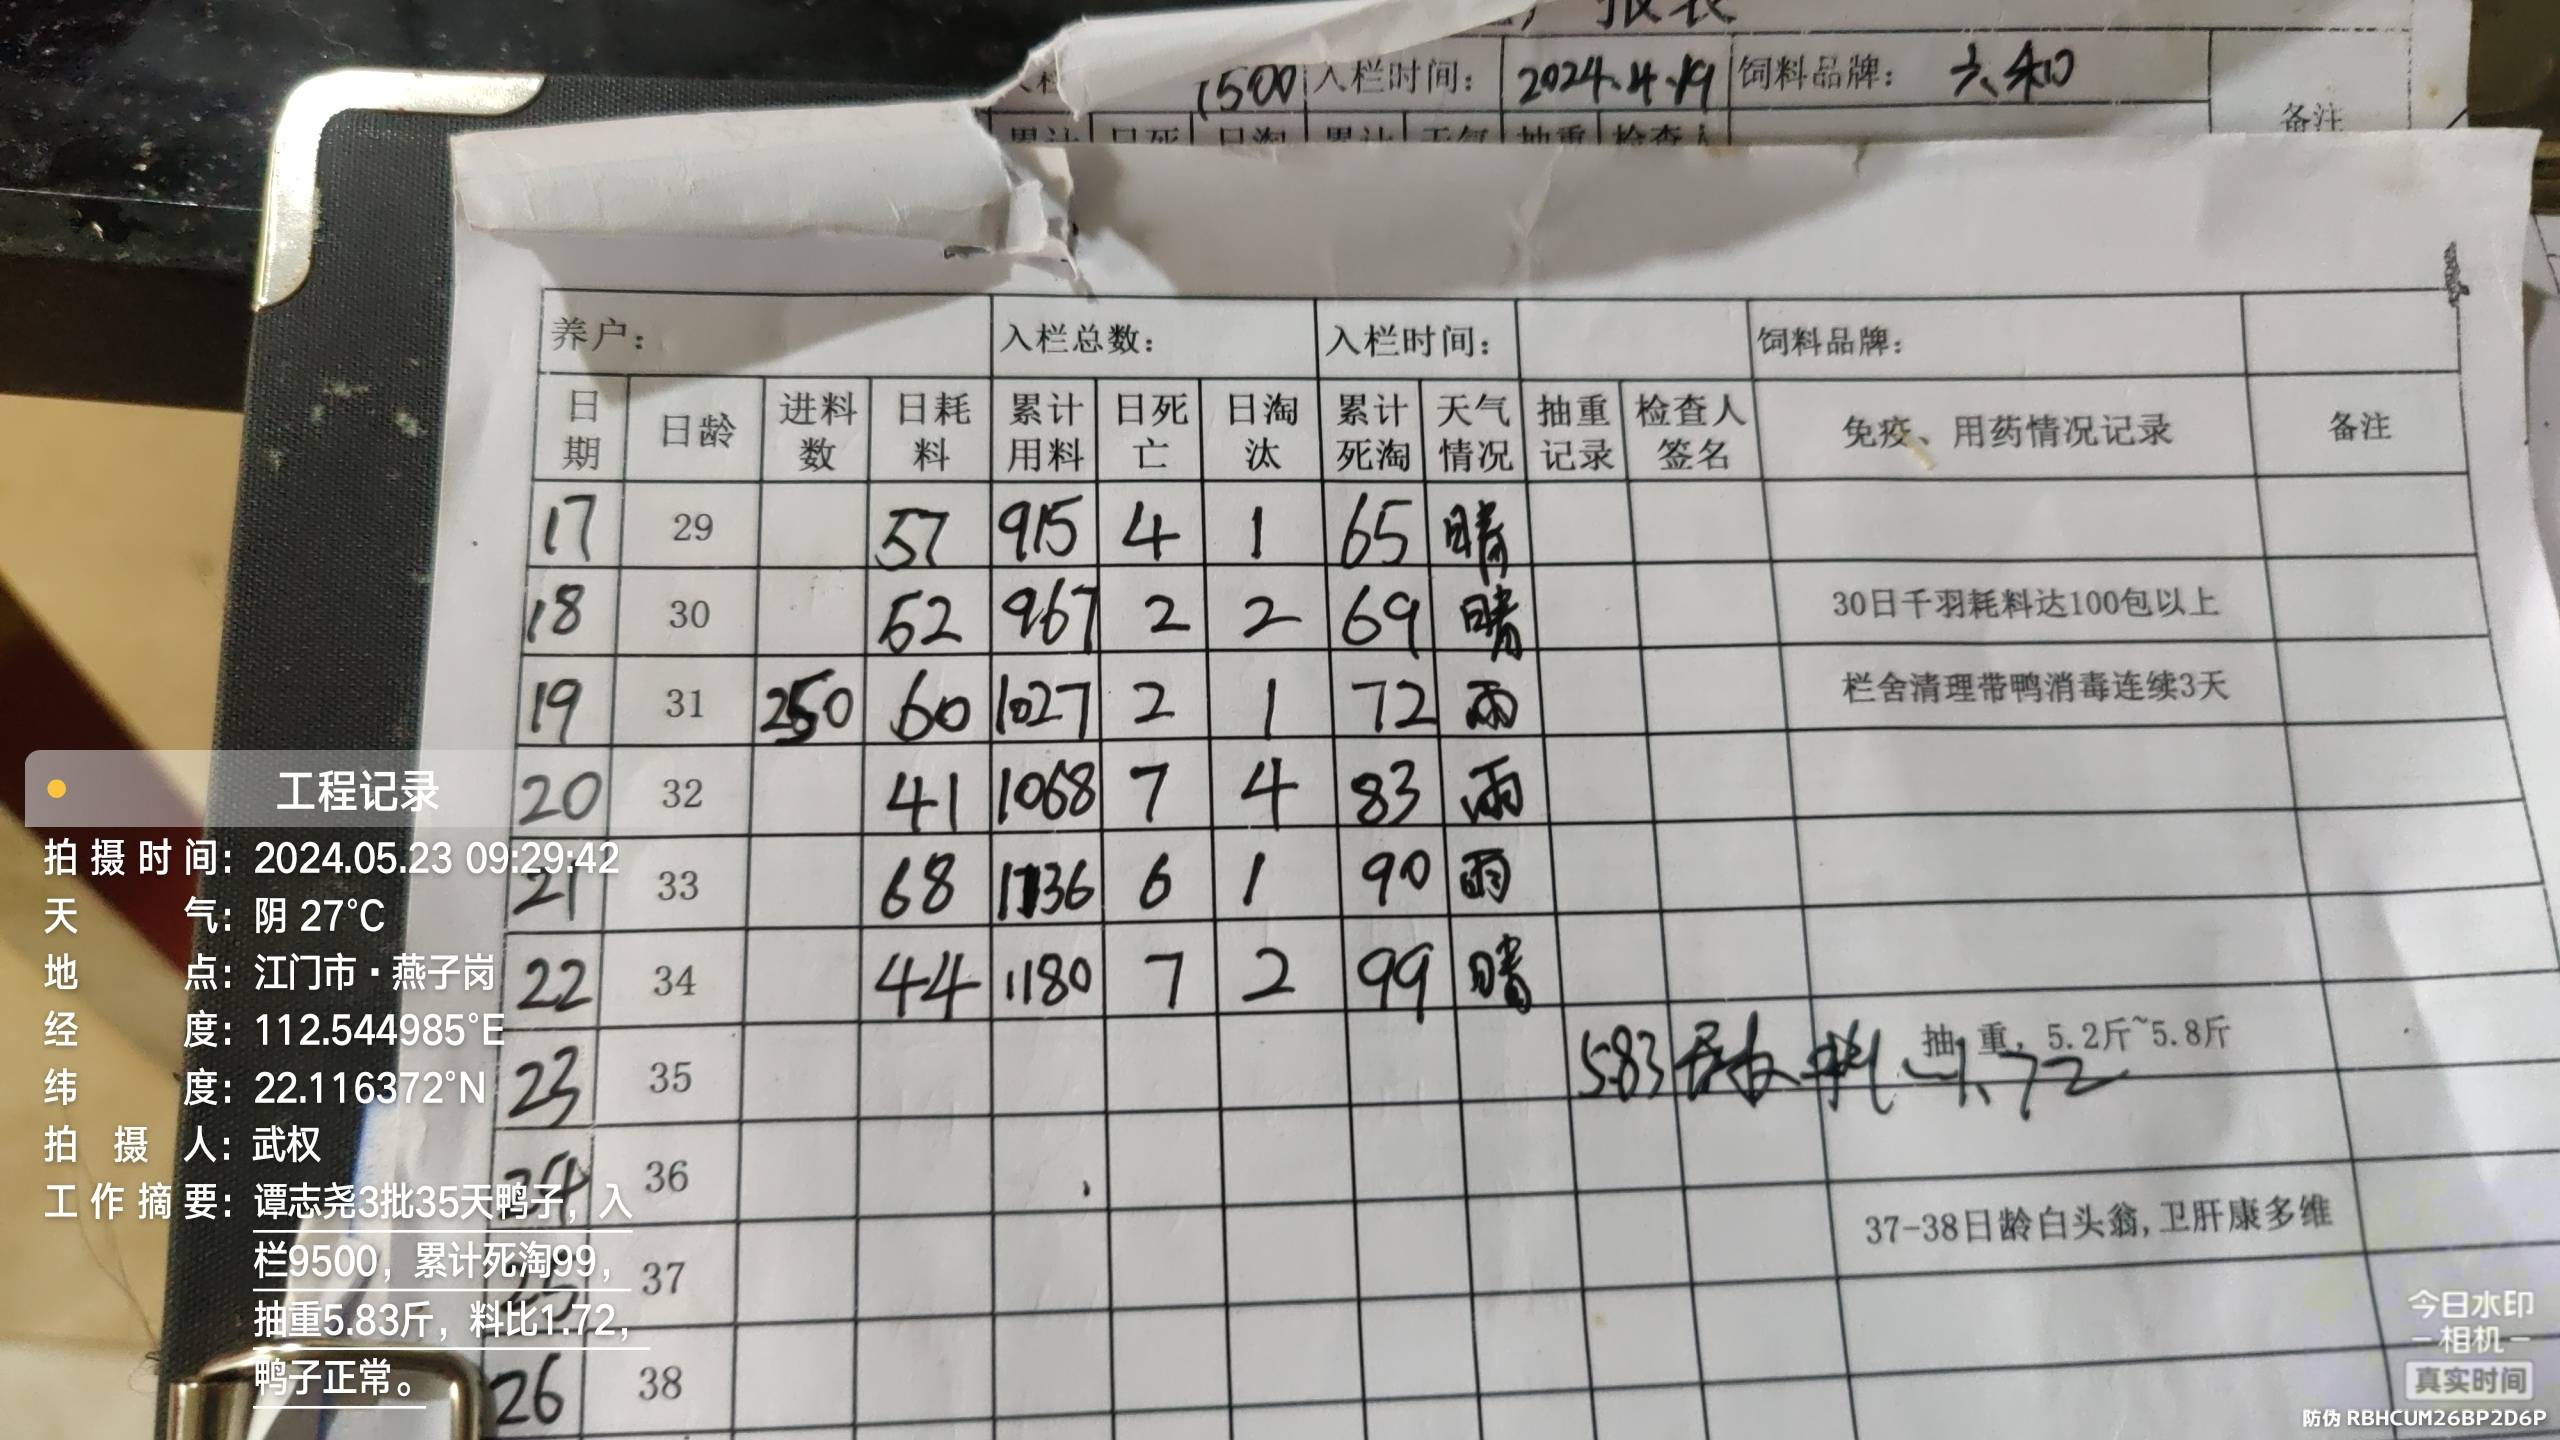 报表
1500 入栏时间： 2024.4.19 饲料品牌： 六和 备注
养户： 入栏总数： 入栏时间： 饲料品牌：
日期 日龄 进料数 日耗料 累计用料 日死亡 日淘汰 累计死淘 天气情况 抽重记录 检查人签名 免疫、用药情况记录 备注
17 29 57 915 4 1 65 晴
18 30 52 967 2 2 69 晴 30日千羽耗料达100包以上
19 31 250 60 1027 2 1 72 雨 栏舍清理带鸭消毒连续3天
20 32 41 1068 7 4 83 雨
21 33 68 1136 6 1 90 雨
22 34 44 1180 7 2 99 晴
23 35 5.83 武权 料 1.72 抽重，5.2斤~5.8斤
24 36
25 37 37-38日龄白头翁,卫肝康多维
26 38
工程记录
拍摄时间：2024.05.23 09:29:42
天气：阴 27℃
地点：江门市·燕子岗
经度：112.544985°E
纬度：22.116372°N
拍摄人：武权
工作摘要：谭志尧3批35天鸭子，入
栏9500，累计死淘99，
抽重5.83斤，料比1.72，
鸭子正常。
今日水印
相机
真实时间
防伪 RBHCUM26BP2D6P